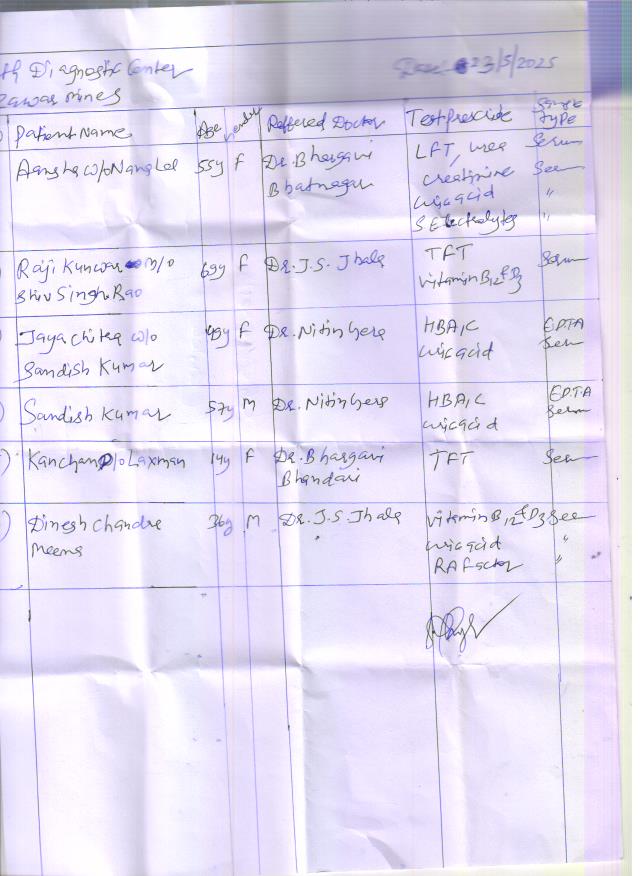 Diagnostic Center
Date 23/5/2025
Zawar mines
Patient Name Age Gender Reffered Doctor Test prescide Sample Type
LFT, urea Serum
Aansha w/o Nanglal 55y F Dr. Bhargavi Creatinine Serum
Bhatnagar uric acid "
S Electrolytes "
Raji Kunwar m/o 69y F Dr. J.S. Jhala TFT Serum
Shiv Singh Rao vitamin B12 & D3
Jaya chitea w/o 49y F Dr. Nitin HBA1C EDTA
Sandish Kumar uric acid Serum
Sandish Kumar 57y M Dr. Nitin HBA1C EDTA
uric acid Serum
Kanchan D/o Laxman 14y F Dr. Bhargavi TFT Serum
Bhandari
Dinesh Chandra 36y M Dr. J.S. Jhala vitamin B12 & D3 Serum
Meena uric acid "
RA Factor "